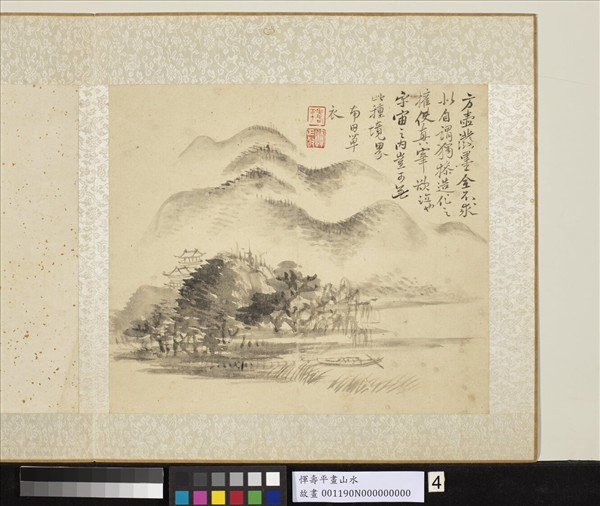 方壺潑墨全不求
似自謂獨搽造化之
權使真宰欲泣也
宇宙之內豈可無
此種境界
南田草
衣
惲壽平畫山水
故畫 001190N000000000
4